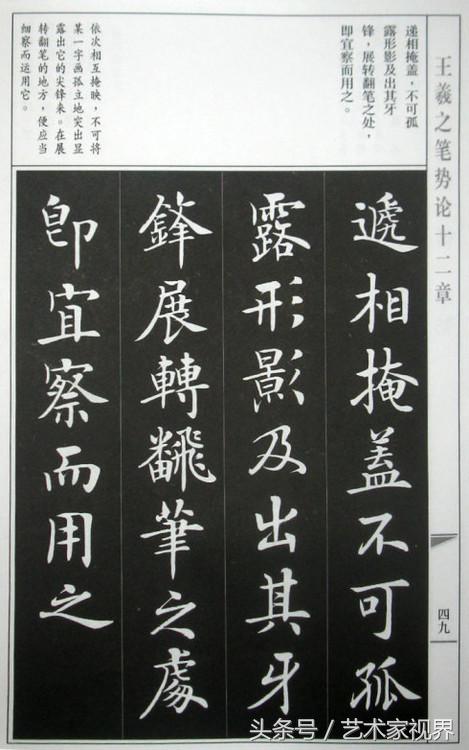 王羲之笔势论十二章
四九
递相掩盖，不可孤
露形影及出其牙
锋，展转翻笔之处，
即宜察而用之。
依次相互掩映，不可将
某一字画孤立地突出显
露出它的尖锋来。在展
转翻笔的地方，便应当
细察而运用它。
遞相掩蓋不可孤
露形影及出其牙
鋒展轉飜筆之處
即宜察而用之
头条号／艺术家视界